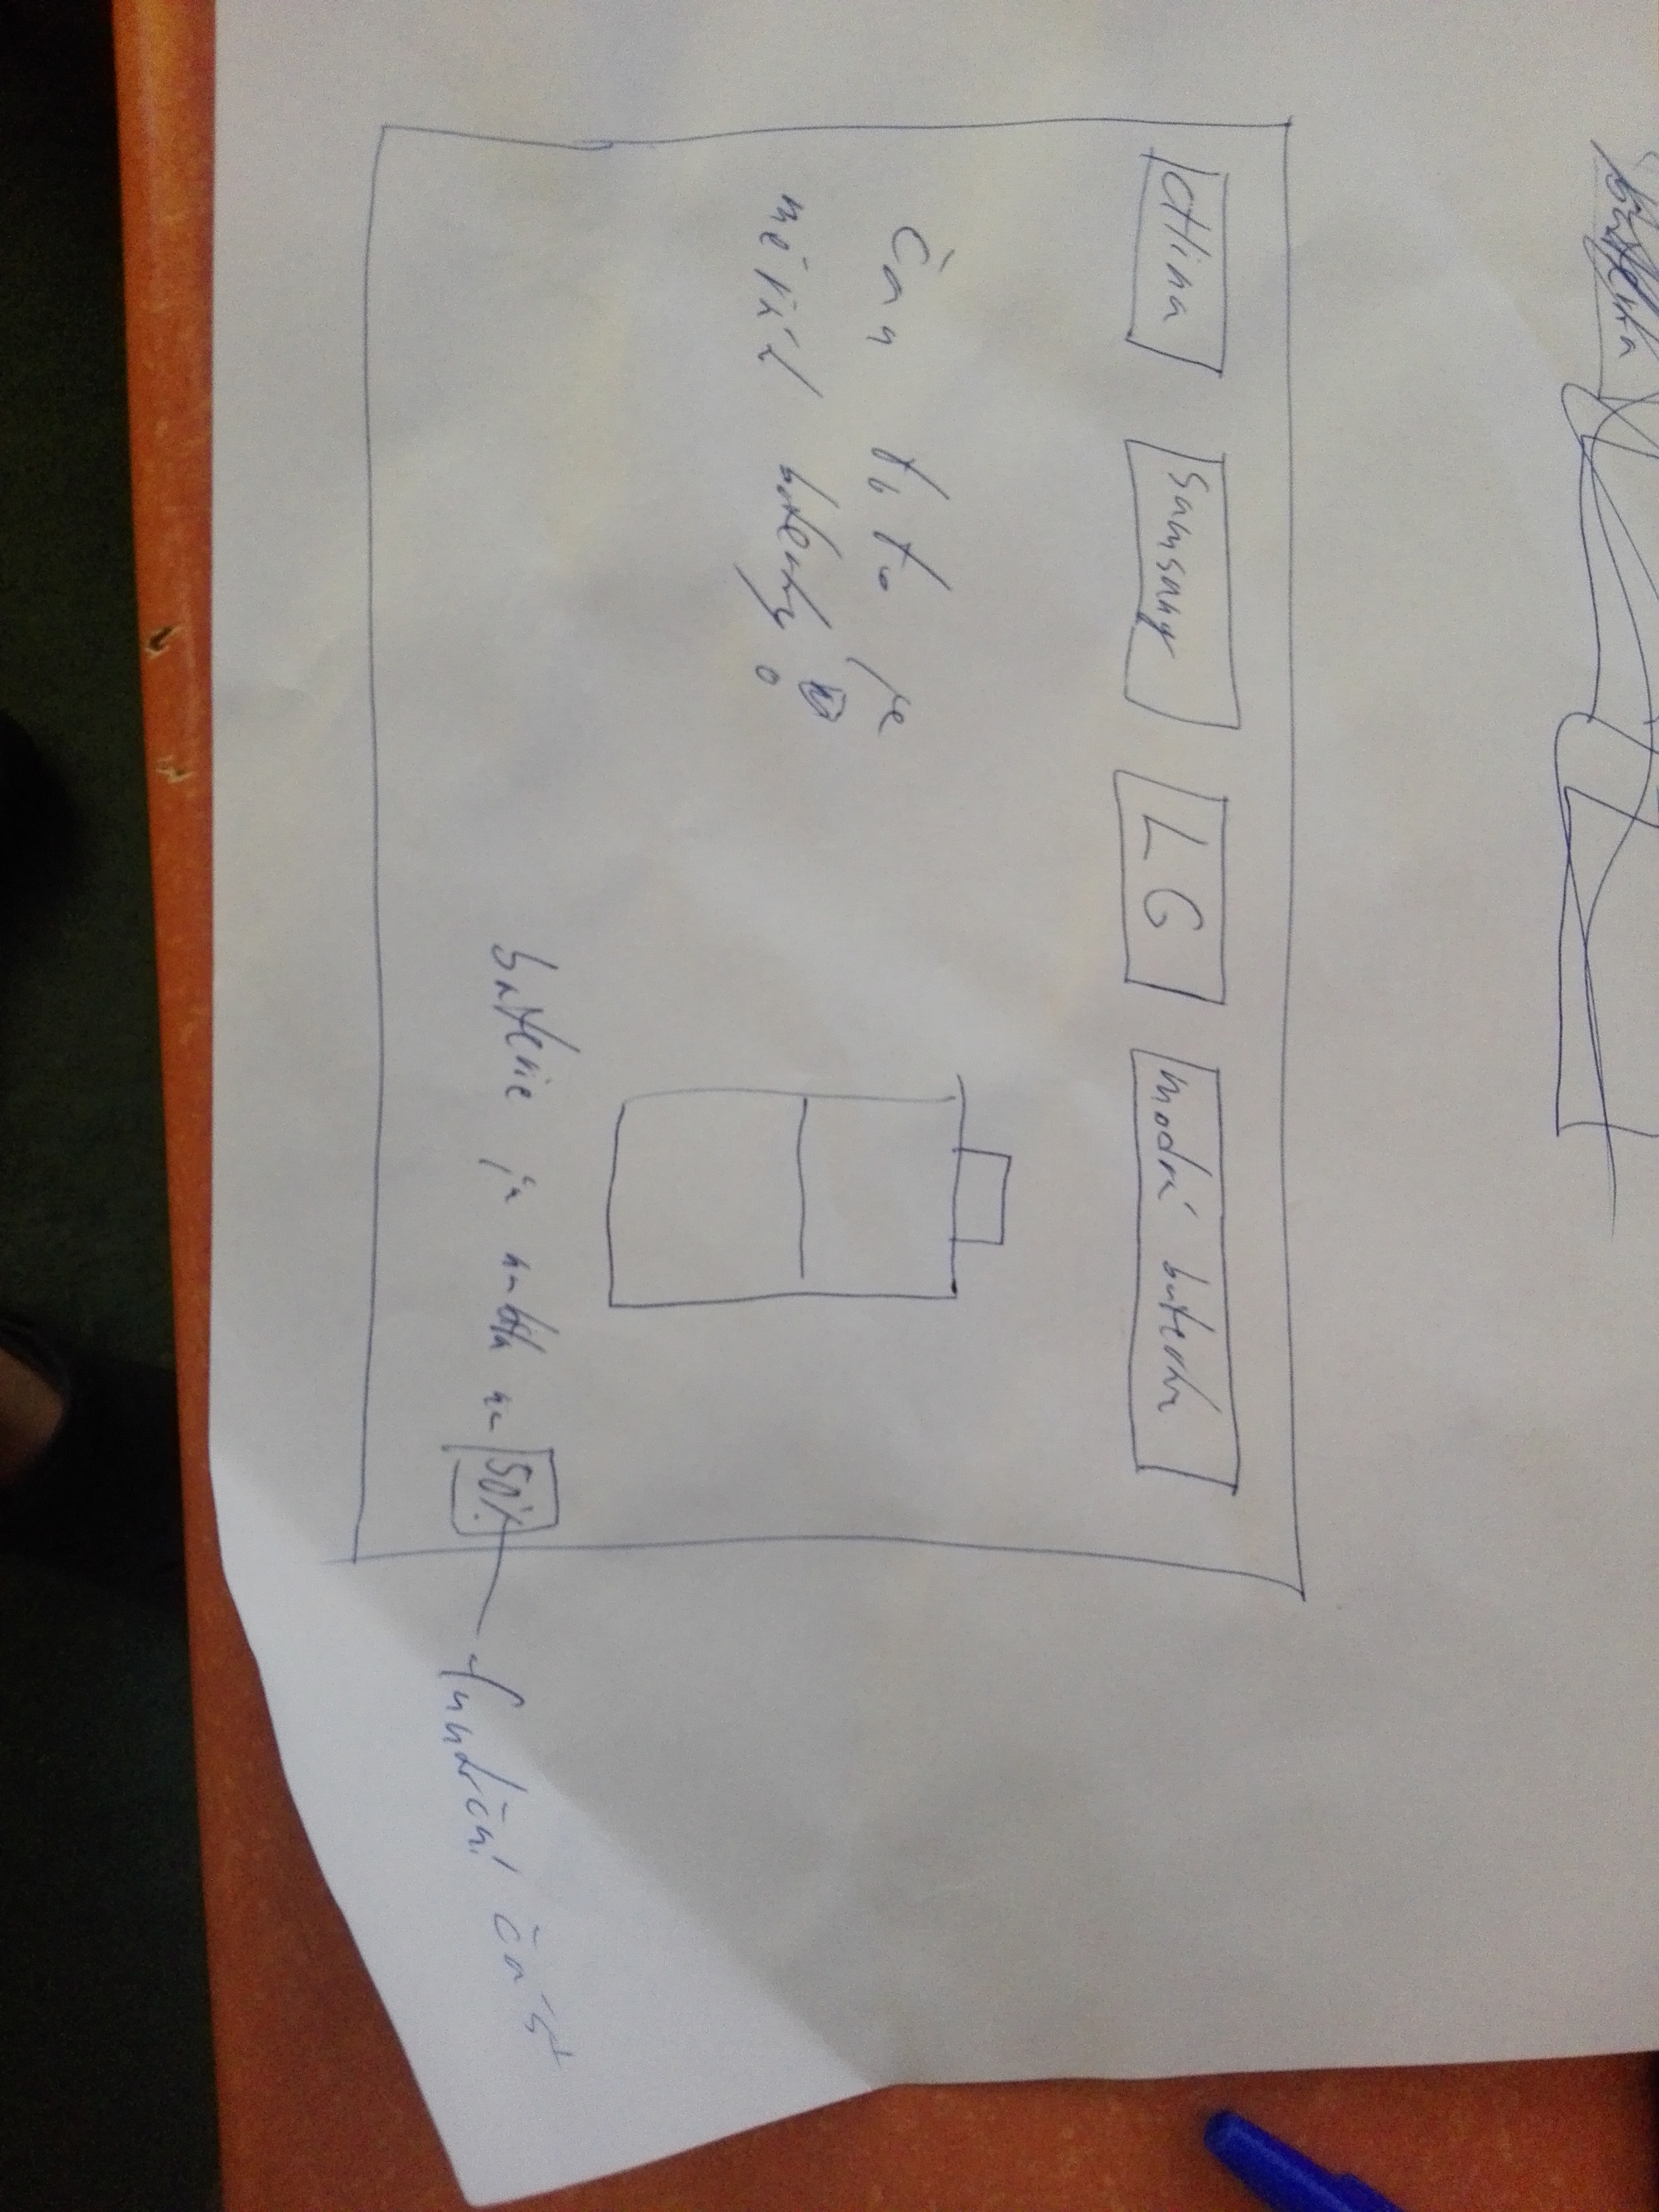 baterka
CHina Samsung LG modrá baterka
Čau toto je
baterky
baterie je nabita na 50%
funkční část